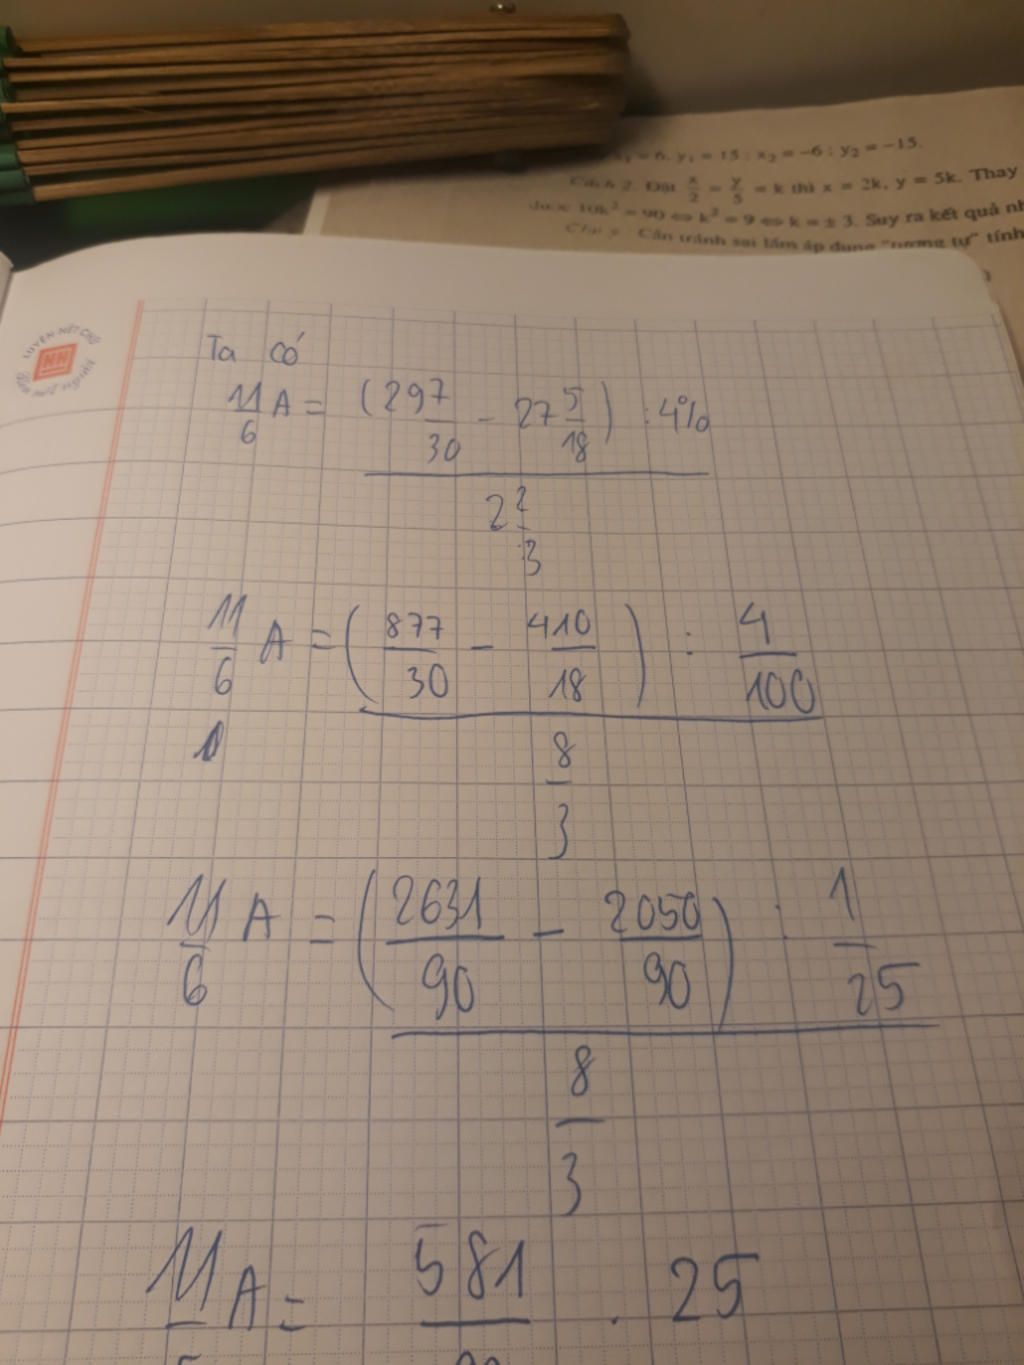 = 6, y₁ = 15 ; x₂ = −6 ; y₂ = −15.
Cách 2. Đặt x/2 = y/5 = k thì x = 2k, y = 5k. Thay
được 10k² = 90 ⇔ k² = 9 ⇔ k = ± 3. Suy ra kết quả nh
Cần tránh sai lầm áp dụng "tương tự" tính
LUYỆN NÉT CHỮ
NH
Ta có
11/6 A = (297/30 − 27 5/18) : 4%
2 2/3
11/6 A = (877/30 − 410/18) : 4/100
8/3
11/6 A = (2631/90 − 2050/90) : 1/25
8/3
11 A = 581 . 25